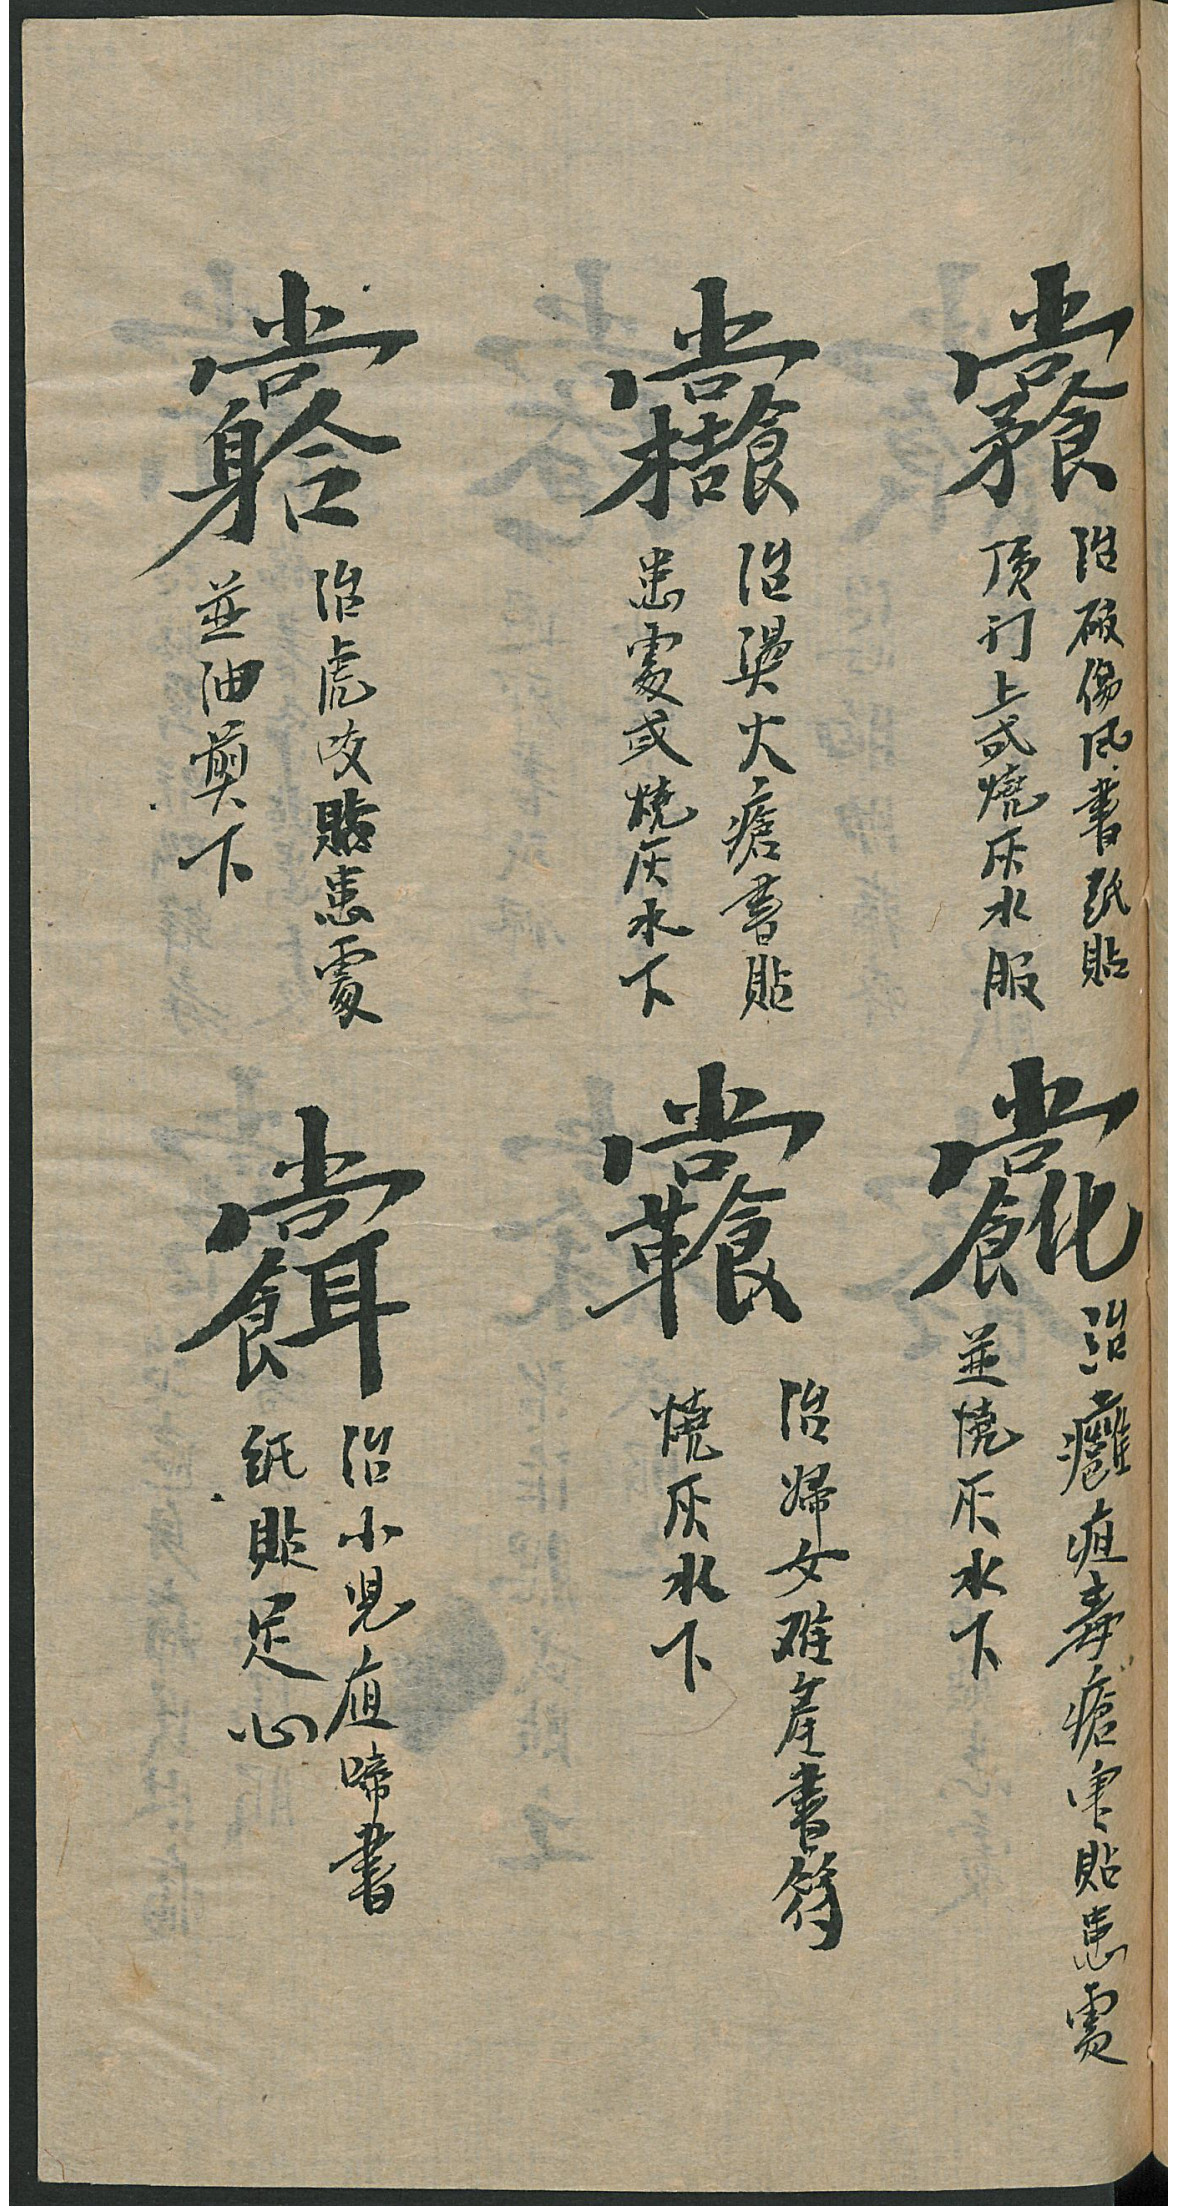 治破傷风書紙貼
頂门上或燒灰水服
治癰疽毒瘡書貼患處
並燒灰水下
治燙火瘡書貼
患處或燒灰水下
治婦女难產書符
燒灰水下
治虎咬貼患處
並油煎下
治小児啼書
紙貼足心